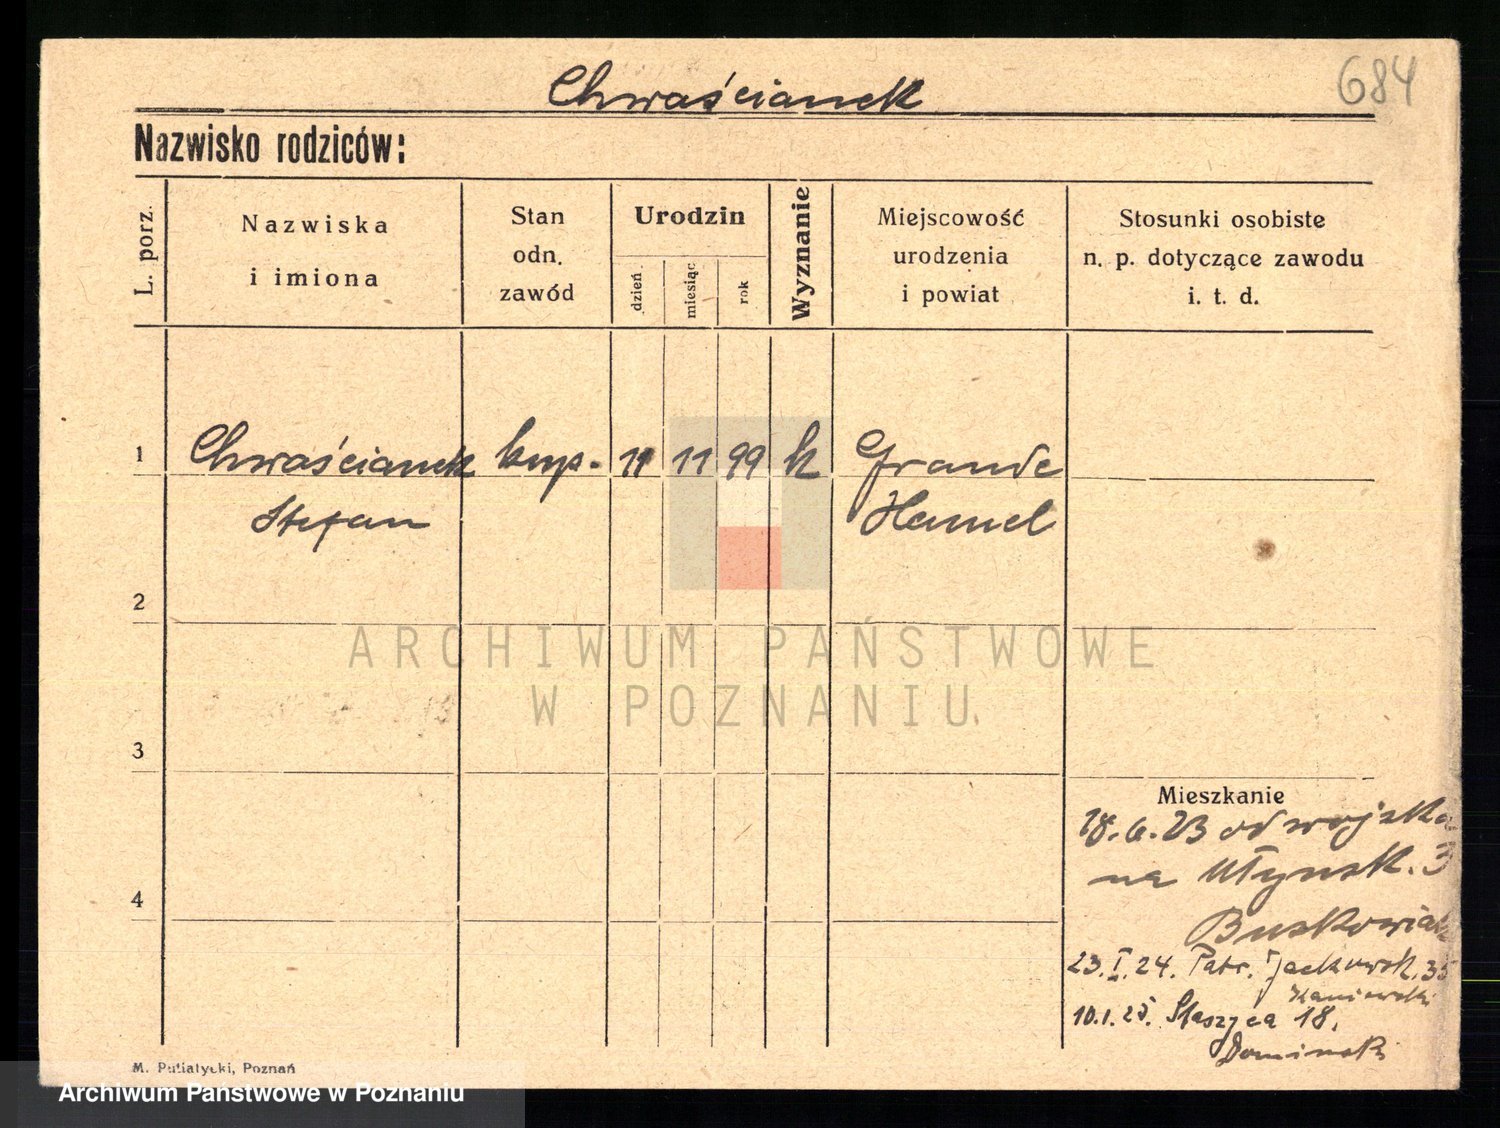 684
Chwaścianek
Nazwisko rodziców:
L. porz.
Nazwiska
i imiona
Stan
odn.
zawód
Urodzin
dzień
miesiąc
rok
Wyznanie
Miejscowość
urodzenia
i powiat
Stosunki osobiste
n. p. dotyczące zawodu
i. t. d.
1
Chwaścianek kup. 11 11 99 k Grande
Stefan Hamel
2
ARCHIWUM PAŃSTWOWE
W POZNANIU
3
Mieszkanie
18.6.23 od wojska
na Młyńsk. 3
4
23.I.24. Patr. Jackowsk. 35
Kaniewski
10.1.25. Staszyca 18.
Dominski
M. Putiatycki, Poznań
Archiwum Państwowe w Poznaniu